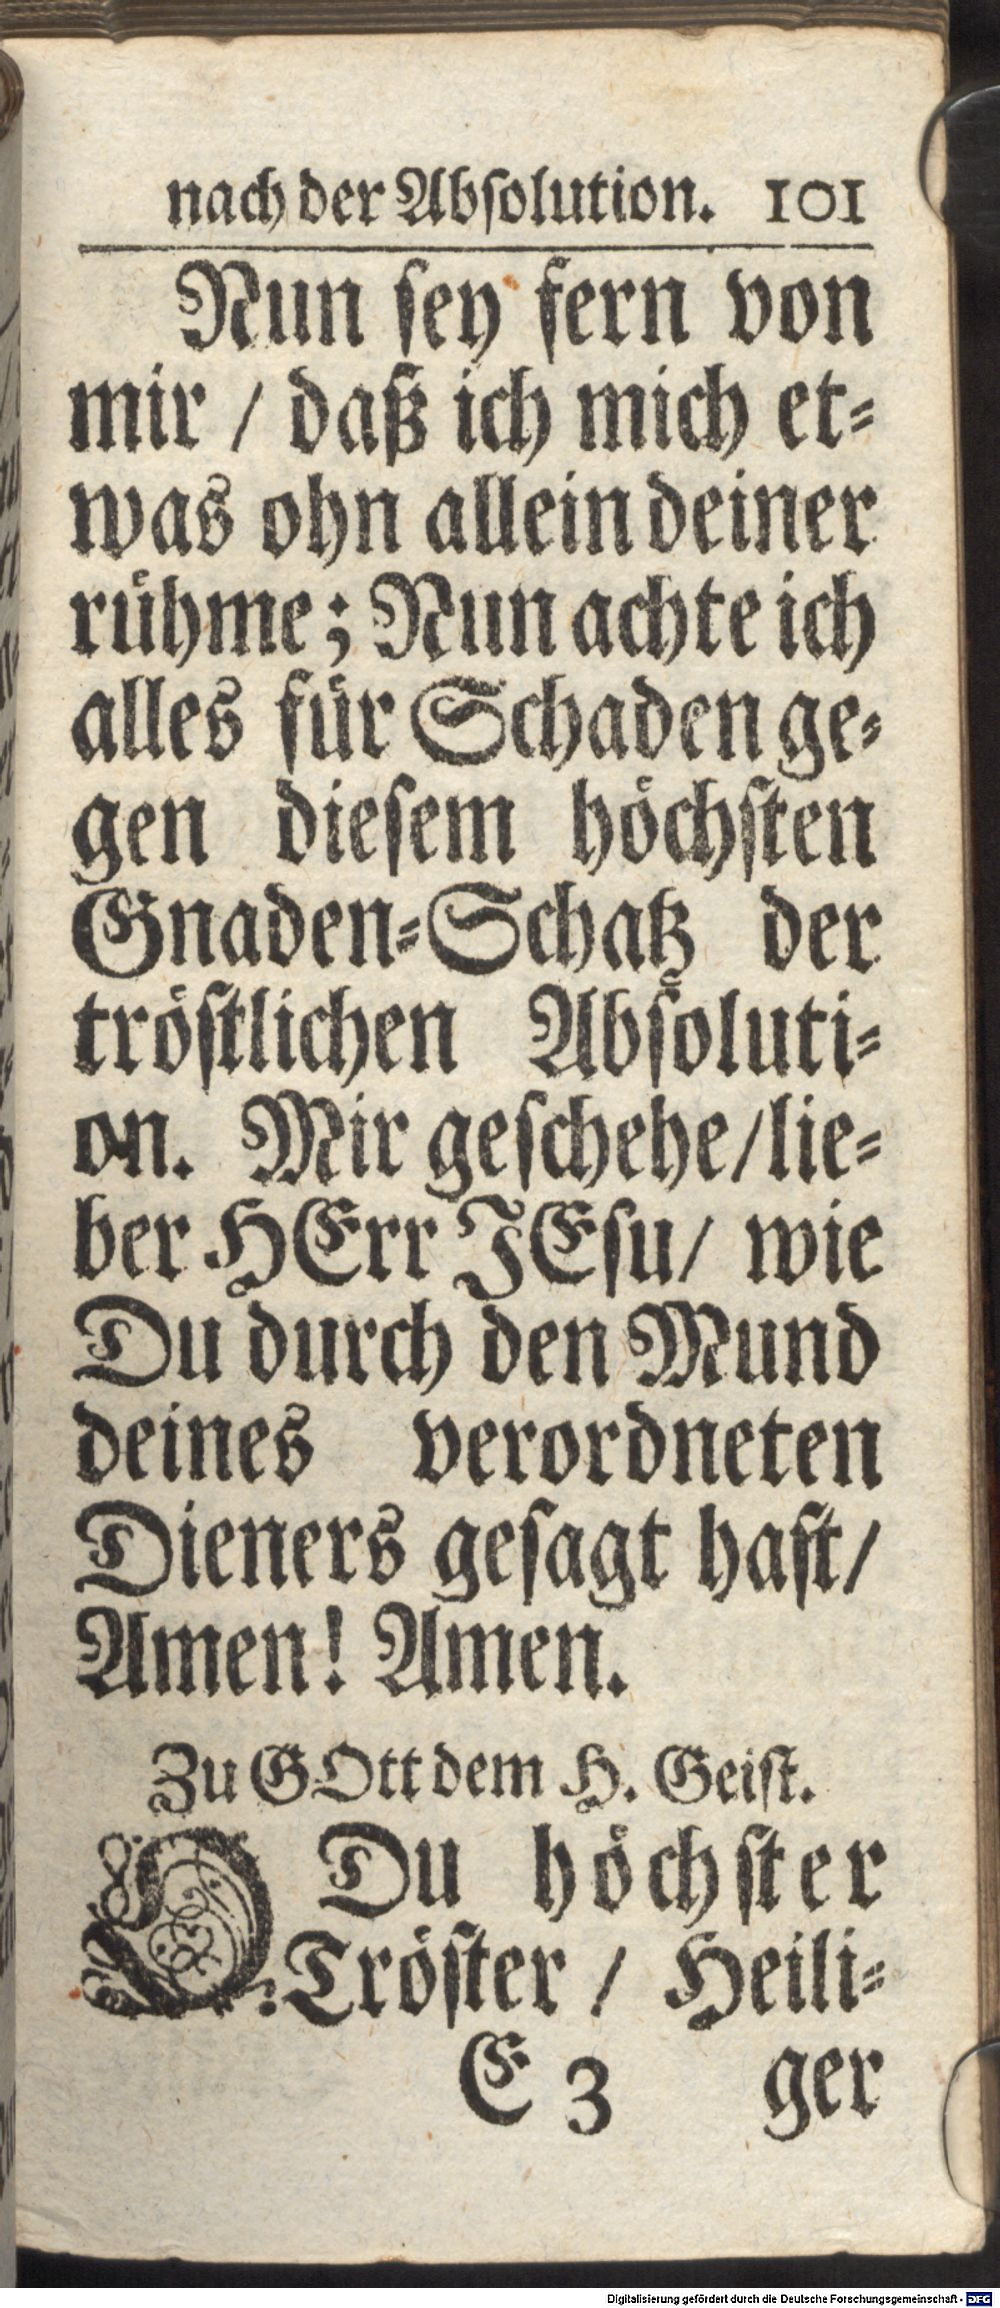 nach der Absolution. 101
Nun sey fern von
mir / daß ich mich et-
was ohn allein deiner
rühme; Nun achte ich
alles für Schaden ge-
gen diesem höchsten
Gnaden-Schatz der
tröstlichen Absoluti-
on. Mir geschehe/lie-
ber HErr JEsu/ wie
Du durch den Mund
deines verordneten
Dieners gesagt hast/
Amen! Amen.
Zu GOtt dem H. Geist.
O Du höchster
Tröster / Heili-
E 3 ger
Digitalisierung gefördert durch die Deutsche Forschungsgemeinschaft - DFG